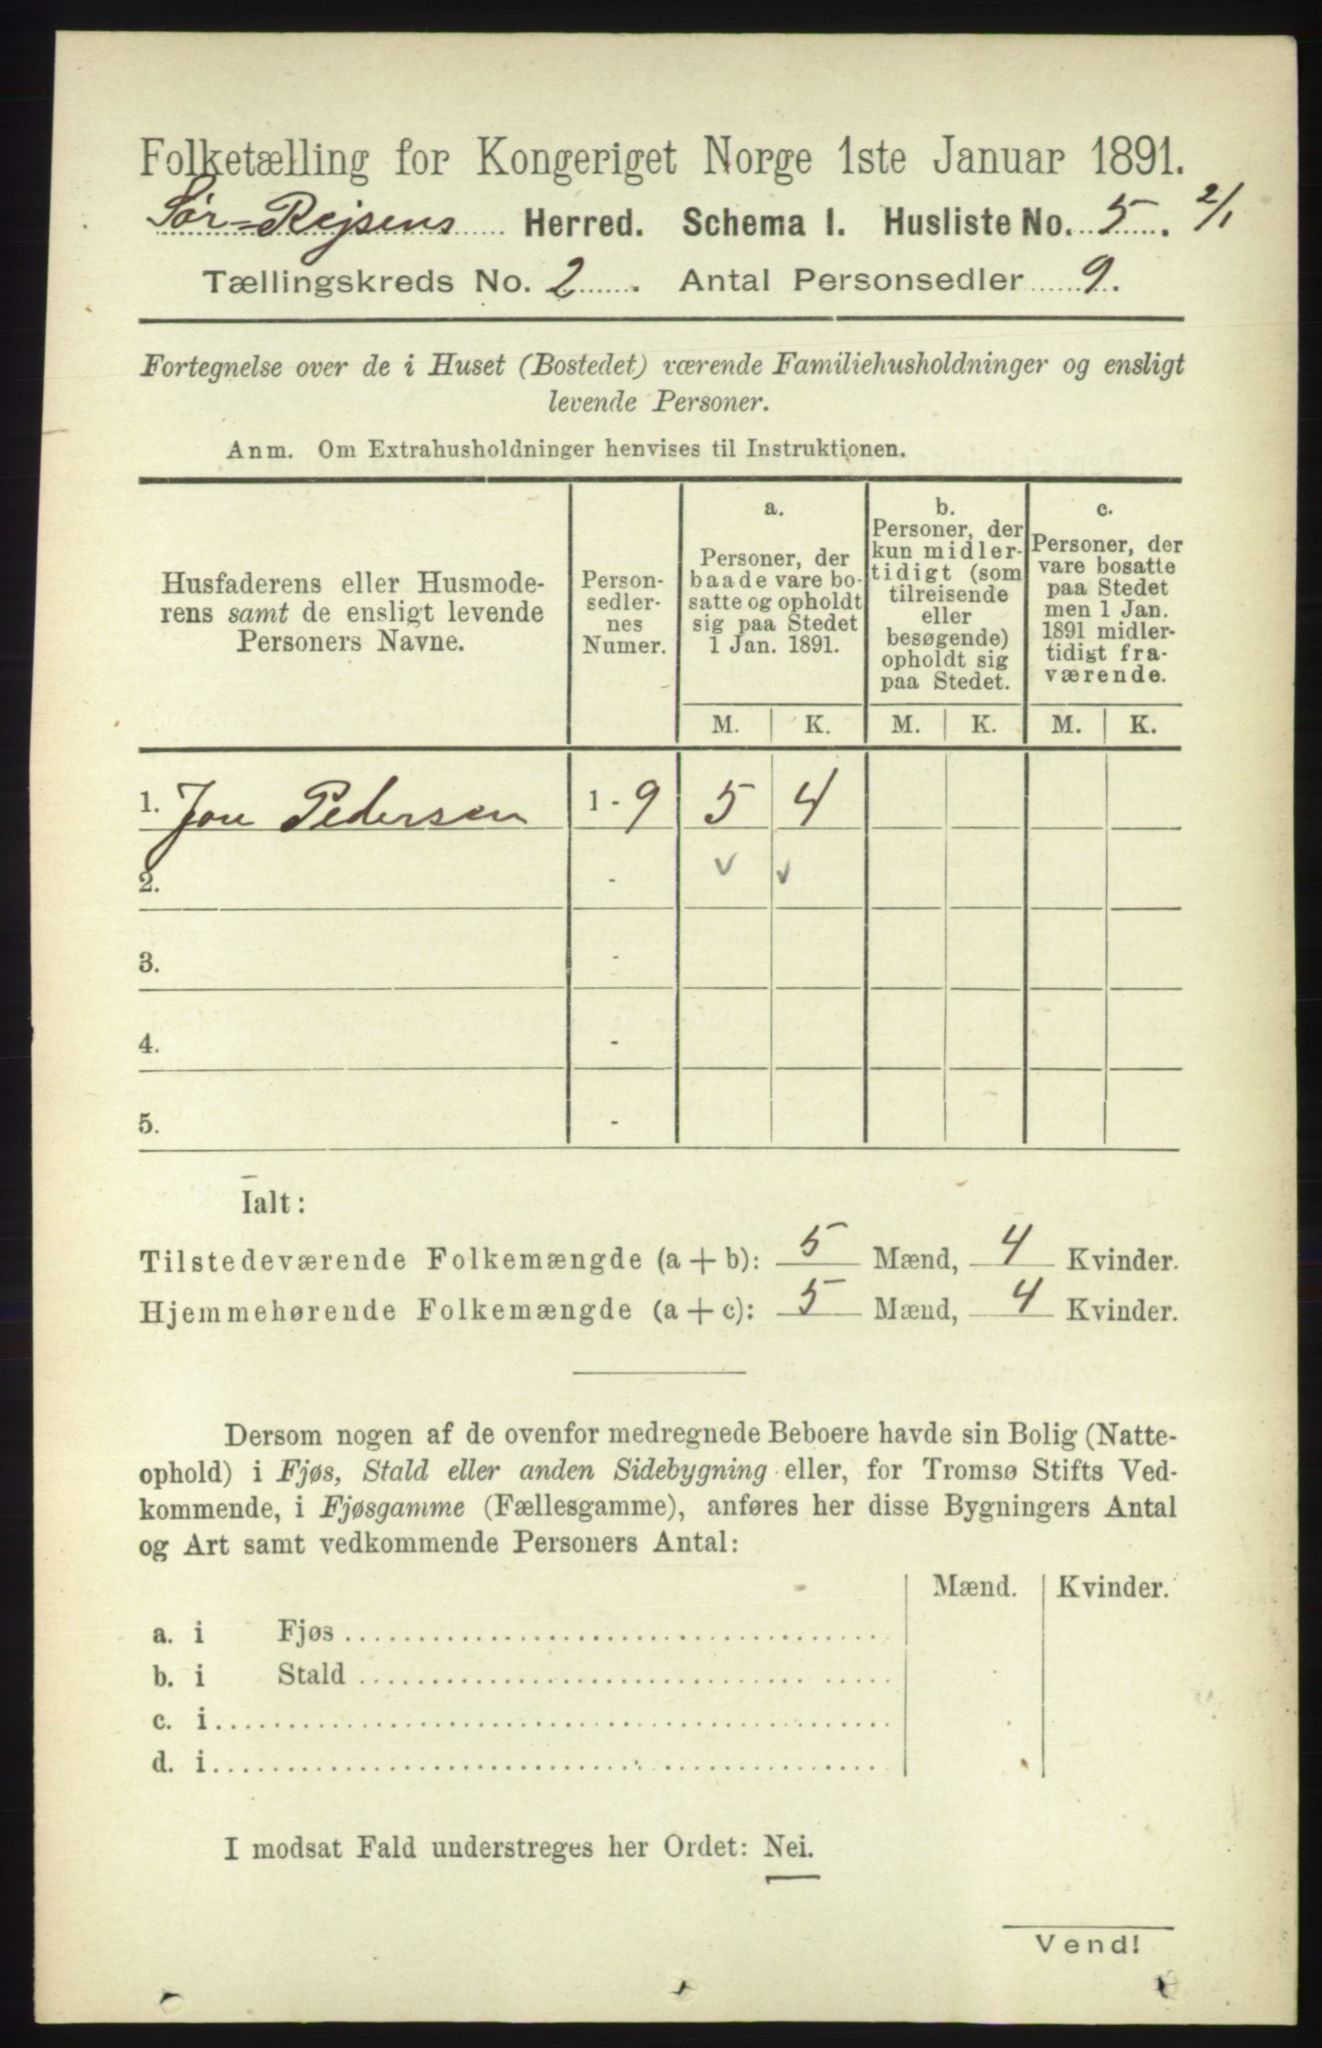 Folketælling for Kongeriget Norge 1ste Januar 1891.
Sør-Rejsens Herred. Schema I. Husliste No. 5. 2/1
Tællingskreds No. 2. Antal Personsedler 9.
Fortegnelse over de i Huset (Bostedet) værende Familiehusholdninger og ensligt
levende Personer.
Anm. Om Extrahusholdninger henvises til Instruktionen.
Husfaderens eller Husmode-
rens samt de ensligt levende
Personers Navne.
Person-
sedler-
nes
Numer.
a.
Personer, der
baade vare bo-
satte og opholdt
sig paa Stedet
1 Jan. 1891.
b.
Personer, der
kun midler-
tidigt (som
tilreisende
eller
besøgende)
opholdt sig
paa Stedet.
c.
Personer, der
vare bosatte
paa Stedet
men 1 Jan.
1891 midler-
tidigt fra-
værende.
M. K. M. K. M. K.
1. Jon Pedersen 1 - 9 5 4
2. -
3. -
4. -
5. -
Ialt:
Tilstedeværende Folkemængde (a + b): 5 Mænd, 4 Kvinder.
Hjemmehørende Folkemængde (a + c): 5 Mænd, 4 Kvinder.
Dersom nogen af de ovenfor medregnede Beboere havde sin Bolig (Natte-
ophold) i Fjøs, Stald eller anden Sidebygning eller, for Tromsø Stifts Ved-
kommende, i Fjøsgamme (Fællesgamme), anføres her disse Bygningers Antal
og Art samt vedkommende Personers Antal:
Mænd. Kvinder.
a. i Fjøs
b. i Stald
c. i
d. i
I modsat Fald understreges her Ordet: Nei.
Vend!